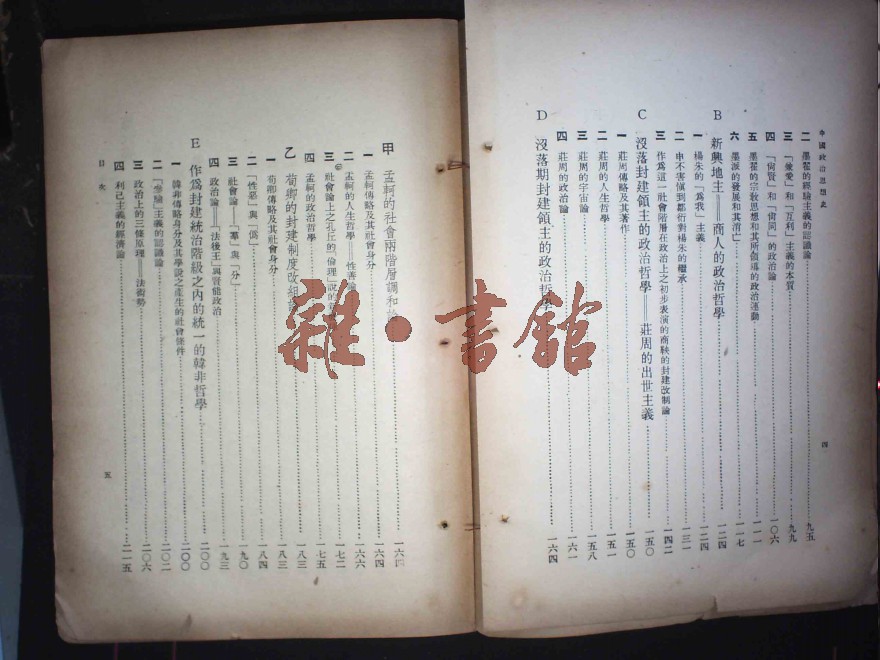 中國政治思想史
二 墨翟的經驗主義的認識論……九五
三 「兼愛」和「互利」主義的本質……九九
四 「尙賢」和「尙同」的政治論……一〇六
五 墨翟的宗敎思想和其所領導的政治運動……一一一
六 墨派的發展和其消亡……一一七
B 新興地主——商人的政治哲學……一二四
一 楊朱的「爲我」主義……一二四
二 申不害愼到鄒衍對楊朱的繼承……一三一
三 作爲這一社會階層在政治上之初步表演的商鞅的封建改制論……一四二
C 沒落封建領主的政治哲學——莊周的出世主義……一五〇
一 莊周傳略及其著作……一五〇
二 莊周的人生哲學……一五一
三 莊周的宇宙論……一五八
四 莊周的政治論……一六一
D 沒落期封建領主的政治哲學……一六四
四
甲 孟軻的社會兩階層調和論……一六四
一 孟軻傳略及其社會身分……一六四
二 孟軻的人生哲學——性善論……一六六
三 社會論上之孔丘的「倫理」說的……一七二
四 孟軻的政治哲學……一七五
乙 荀卿的封建制度改組……一八三
一 荀卿傳略及其社會身分……一八三
二 「性惡」與「僞」……一八四
三 社會論——「羣」與「分」……一九〇
四 政治論——「法後王」與賢能政治……一九三
E 作爲封建統治階級之內的統一的韓非哲學……二〇〇
一 韓非傳略身分及其學說之產生的社會條件……二〇〇
二 「參驗」主義的認識論……二〇二
三 政治上的三條原理——法術勢……二〇六
四 利己主義的經濟論……二一五
目次
五
雜·書舘